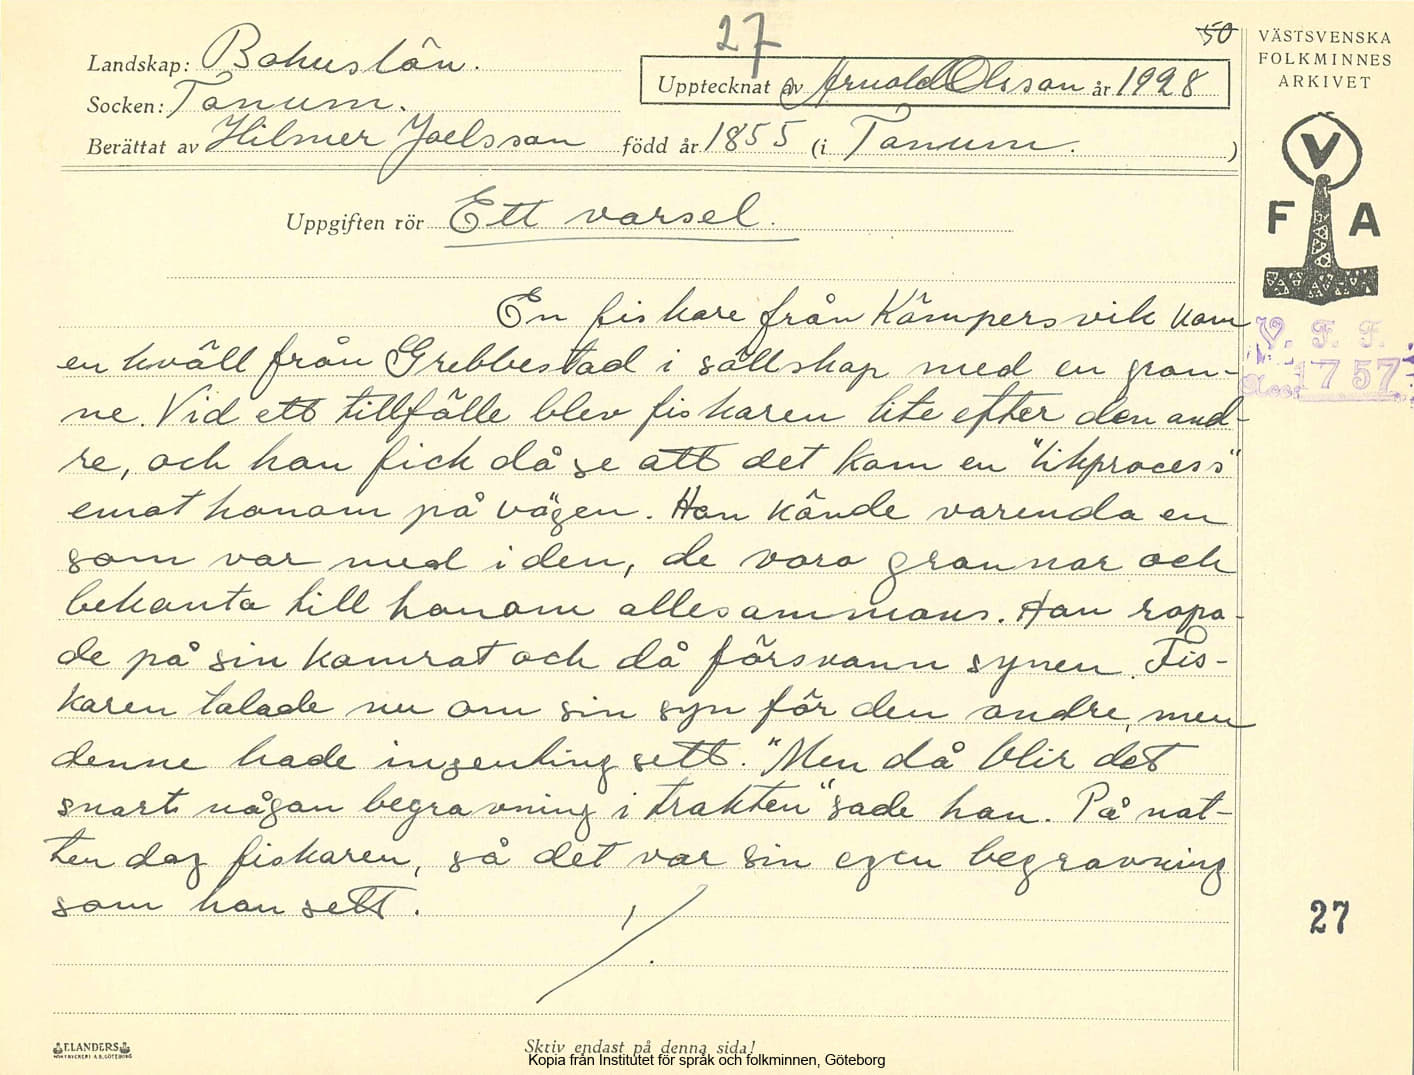 27
50
Landskap: Bohuslän.
Upptecknat av Arnold Olsson år 1928
Socken: Tanum.
Berättat av Hilmer Joelsson född år 1855 (i Tanum.)
VÄSTSVENSKA
FOLKMINNES
ARKIVET
V
F A
Uppgiften rör Ett varsel.
V. F. F.
1757
En fiskare från Kämpersvik kom
en kväll från Grebbestad i sällskap med en gran-
ne. Vid ett tillfälle blev fiskaren lite efter den and-
re, och han fick då se att det kom en "likprocess"
emot honom på vägen. Han kände varenda en
som var med i den, de voro grannar och
bekanta till honom allesammans. Han ropa-
de på sin kamrat och då försvann synen. Fis-
karen talade nu om sin syn för den andre, men
denne hade ingenting sett. "Men då blir det
snart någon begravning i trakten" sade han. På nat-
ten dog fiskaren, så det var sin egen begravning
som han sett.
27
F. LANDERS
BOKTRYCKERI A.B. GÖTEBORG
Skriv endast på denna sida!
Kopia från Institutet för språk och folkminnen, Göteborg